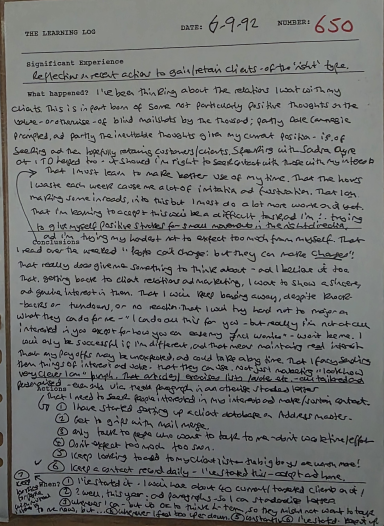 THE LEARNING LOG DATE: 6-9-92 NUMBER: 650
Significant Experience
Reflections on recent actions to gain/retain clients - of the 'right' type.
What happened? I've been thinking about the relations I want with my
clients. This is in part born of some not particularly positive thoughts on the
value - or otherwise - of blind mailshots by the thousand; partly Dale Carnegie
prompted, and partly the inevitable thoughts given my current position - i.e. of
seeking and then hopefully retaining customers/clients. Speaking with Sandra
of ITD helped too - it should I'm right to seek contact with those with my interests
That I must learn to make better use of my time. That the hours
I waste each week cause me a lot of irritation and frustration. That I
making some inroads into this but I must do a lot more work and yet
That I'm learning to accept this will be a difficult task and I'm trying
to give myself positive strokes for small movements in the right direction
and I'm trying my hardest not to expect too much from myself. That
Conclusions
I read over the weekend "people can't change: but they can make changes".
That really does give me something to think about - and I believe it too
That, getting back to client relations and marketing, I want to show a sincere,
and genuine interest in them. That I will keep banging away, despite knock-
backs or turndowns, or no reaction. That I will try hard not to major on
what they can do for me - "I can do all this for you - but really I'm not at all
interested in you except for how you can ease my" - won't be me. I
will only be successful if I'm different, and that means maintaining real interest
That my payoffs may be unexpected, and could take a long time. That I focus sending
them things of interest and value - that they can use. Not just marketing "look how
very clever I am" That articles, exercises, lists
personalised - even only via one paragraph in an otherwise standard letter
Actions
That I need to seek people interested in my interests and make/sustain contact.
① I have started setting up a client database on Address master.
② Get to grips with mail merge.
③ Only talk to people who want to talk to me - don't waste time/effort
④ Don't expect too much too soon.
⑤ Keep looking to add to my client list - the big boys are worth more!
⑥ Keep a contact record daily - I've started this - adapt and
When? ① I've started it. I will have about 40 current/targeted clients on it
② ? well, this year, and paragraphs - so I can standardise letters
③ Whenever I can - but up to to think of them, so they might not want to talk
to me now, but